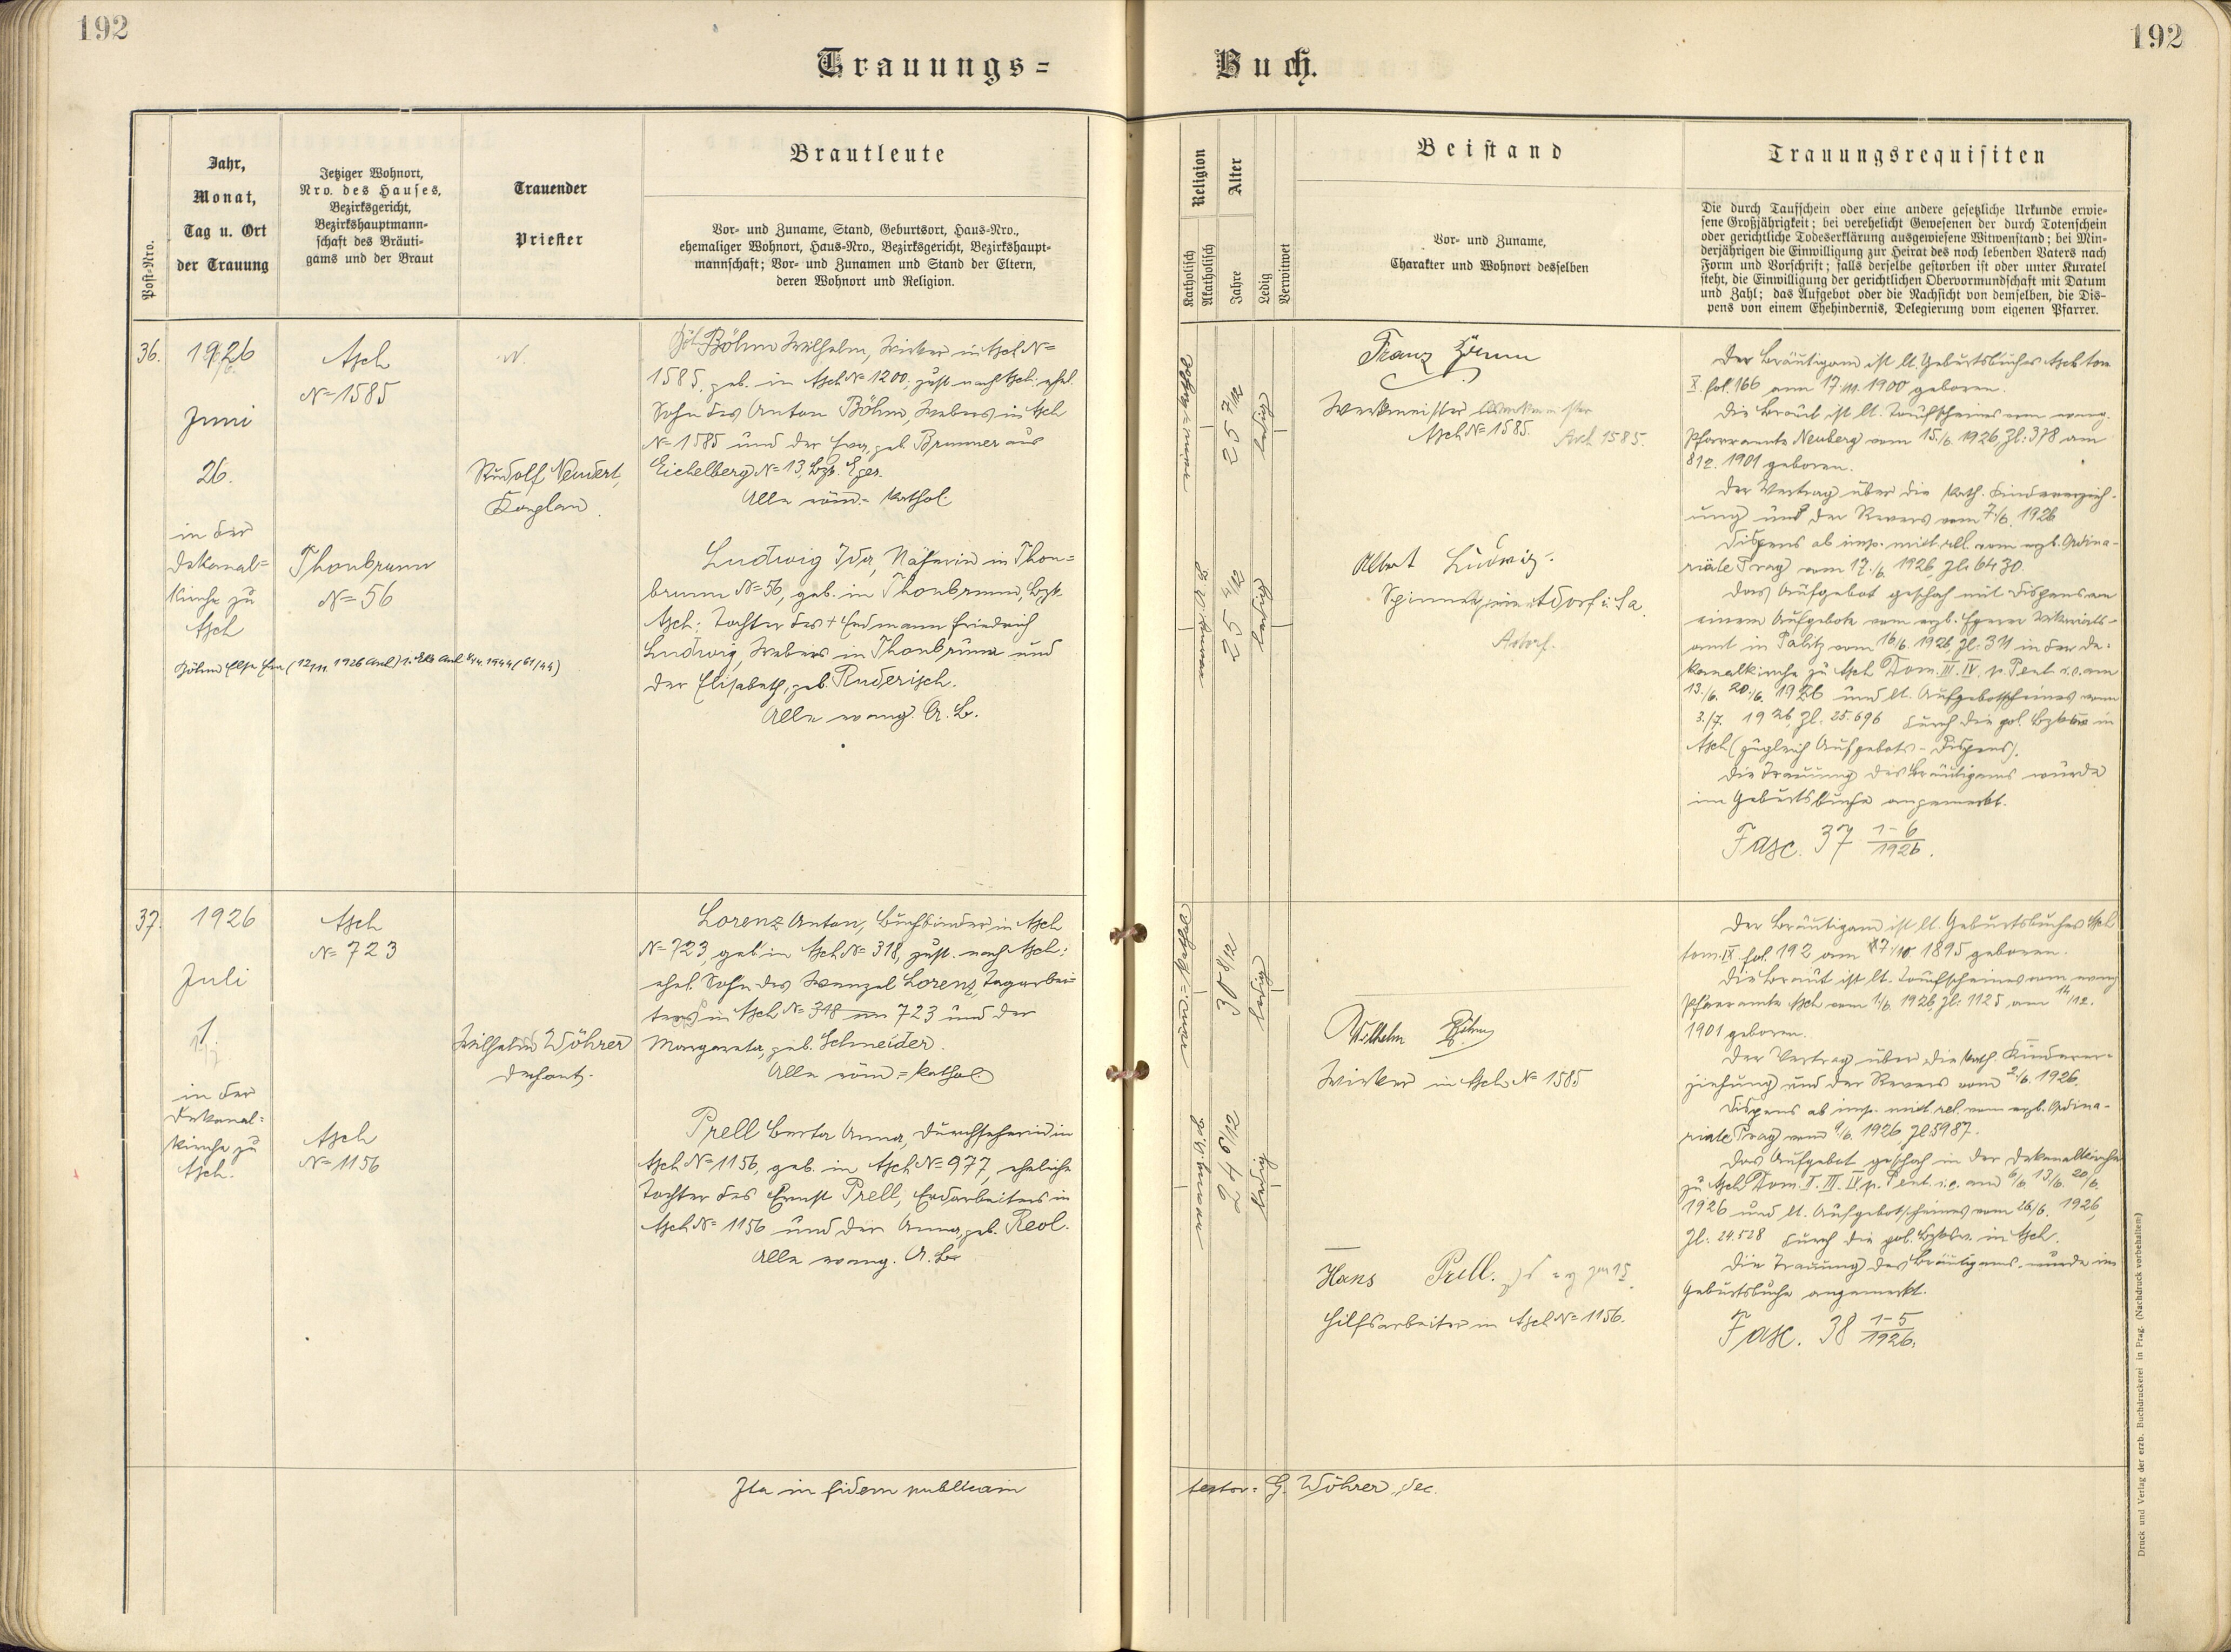 192
192
Trauungs=
Buch.
Post-Nro.
Jahr,
Monat,
Tag u. Ort
der Trauung
Jetziger Wohnort,
Nro. des Hauses,
Bezirksgericht,
Bezirkshauptmann-
schaft des Bräuti-
gams und der Braut
Trauender
Priester
Brautleute
Vor- und Zuname, Stand, Geburtsort, Haus-Nro.,
ehemaliger Wohnort, Haus-Nro., Bezirksgericht, Bezirkshaupt-
mannschaft; Vor- und Zunamen und Stand der Eltern,
deren Wohnort und Religion.
Religion
Katholisch
Akatholisch
Alter
Jahre
Ledig
Verwitwet
Beistand
Vor- und Zuname,
Charakter und Wohnort desselben
Trauungsrequisiten
Die durch Taufschein oder eine andere gesetzliche Urkunde erwie-
sene Großjährigkeit; bei verehelicht Gewesenen der durch Totenschein
oder gerichtliche Todeserklärung ausgewiesene Witwenstand; bei Min-
derjährigen die Einwilligung zur Heirat des noch lebenden Vaters nach
Form und Vorschrift; falls derselbe gestorben ist oder unter Kuratel
steht, die Einwilligung der gerichtlichen Obervormundschaft mit Datum
und Zahl; das Aufgebot oder die Nachsicht von demselben, die Dis-
pens von einem Ehehindernis, Delegierung vom eigenen Pfarrer.
36.
1926
Juni
26.
in der
Dekanal=
kirche zu
Asch
Asch
N= 1585
Thonbrunn
N= 56
Rudolf Neudert,
Kaplan.
Böhm Wilhelm, Wirker in Asch N=
1585, geb. in Asch N= 1200, zust. nach Asch; ehel.
Sohn des Anton Böhm, Webers in Asch
N= 1585 und der Eva, geb. Brunner aus
Eichelberg N= 13, Bzk. Eger.
Alle röm.= kathol.
Ludwig Ida, Näherin in Thon=
brunn N= 56, geb. in Thonbrunn, Bzk.
Asch; Tochter des + Erdmann Friedrich
Ludwig, Webers in Thonbrunn und
der Elisabeth, geb. Ruderisch.
Alle evang. A. B.
25 7/12
ledig
25 4/12
ledig
Franz
Werkmeister
Asch N= 1585.
Asch 1585.
Albert Ludwig.
Adorf.
Der Bräutigam ist lt. Geburtsbuches Asch tom.
X. fol. 166 am 17./11. 1900 geboren.
Die Braut ist lt. Taufscheines vom evang.
Pfarramte Neuberg vom 15./6. 1926, Zl: 378 am
1901 geboren.
Der Vertrag über die kath. Kindererzieh-
ung und der Revers vom 7./6. 1926
Dispens ab imp. mixt. rel. vom erzb. Ordina-
riate Prag vom 17./6. 1926, Zl: 6430.
Das Aufgebot geschah mit Dispens von
einem Aufgebote vom erzb. Egerer Vikariats-
amt in vom 16/6. 1926, Zl: 311 in der De-
kanalkirche zu Asch Dom. III. IV. p. Pent. i. e. am
13./6. 20./6. 1926 und lt. Aufgebotscheines vom
3./7. 1926, Zl: 25.696 durch die pol. Bzksv. in
Asch (zugleich Aufgebots-Dispens).
Die Trauung des Bräutigams wurde
im Geburtsbuche angemerkt.
Fasc. 37 1-6/1926.
37.
1926
Juli
1.
in der
Dekanal=
kirche zu
Asch.
Asch
N= 723
Asch
N= 1156
Wilhelm Wöhrer
Dechant.
Lorenz Anton, Buchbinder in Asch
N= 723, geb. in Asch N= 318, zust. nach Asch;
ehel. Sohn des Wenzel Lorenz, Tagarbei=
ters in Asch N= 318 723 und der
Margareta, geb. Schneider.
Alle röm.= kathol.
Prell Berta Anna, Durchseherin in
Asch N= 1156, geb. in Asch N= 977, eheliche
Tochter des Ernst Prell, Erdarbeiters in
Asch N= 1156 und der Anna, geb. Reol.
Alle evang. A. B.
30 8/12
ledig
24 6/12
ledig
Wilhelm Böhm
Wirker in Asch N= 1585
Hans Prell.
Hilfsarbeiter in Asch N= 1156.
Der Bräutigam ist lt. Geburtsbuches Asch
tom. IX. fol. 192 am 1895 geboren.
Die Braut ist lt. Taufscheines vom evang.
Pfarramte Asch vom 1./6. 1926, Zl: 1125, am 14/12.
1901 geboren.
Der Vertrag über die kath. Kinderer-
ziehung und der Revers vom 2./6. 1926.
Dispens ab imp. mixt. rel. vom erzb. Ordina-
riate Prag vom 9/6. 1926, Zl: 5987.
Das Aufgebot geschah in der Dekanalkirche
zu Asch Dom. II. III. IV. p. Pent. i. e. am 6/6. 13/6. 20/6.
1926 und lt. Aufgebotscheines vom 26/6. 1926,
Zl: 24.528 durch die pol. Bzksv. in Asch.
Die Trauung des Bräutigams wurde im
Geburtsbuche angemerkt.
Fasc. 38 1-5/1926.
Ita in fidem publicam
testor: G. Wöhrer, dec.
Druck und Verlag der erzb. Buchdruckerei in Prag. (Nachdruck vorbehalten)